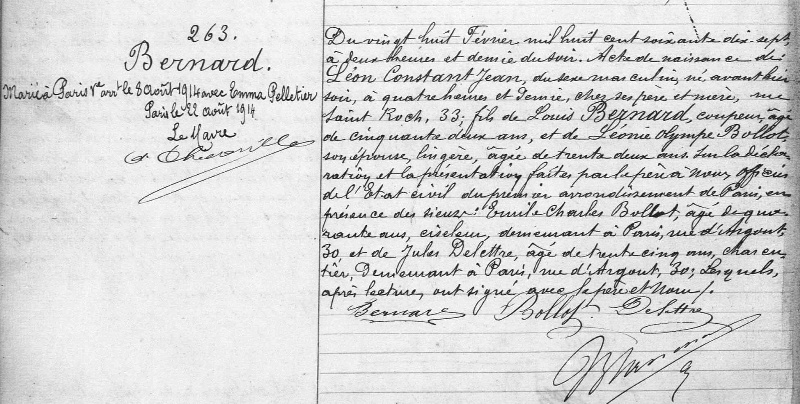 263.
Bernard.
Marié à Paris 1er arrt le 8 août 1914 avec Emma Pelletier
Paris le 22 août 1914
Le Maire
Du vingt huit Février mil huit cent soixante dix-sept,
à deux heures et demie du soir. Acte de naissance de
Léon Constant Jean, du sexe masculin, né avant hier
soir, à quatre heures et demie, chez ses père et mère, rue
Saint Roch, 33; fils de Louis Bernard, coupeur, âgé
de cinquante deux ans, et de Léonie Olympe Bollot
son épouse, lingère, âgée de trente deux ans. Sur la décla-
ration et la présentation faites par le père à Nous officier
de l'Etat civil du premier arrondissement de Paris, en
présence des sieurs: Emile Charles Bollot, âgé de qua-
rante ans, ciseleur, demeurant à Paris, rue d'Argout,
30, et de Jules Delettre, âgé de trente cinq ans, charcu-
tier, demeurant à Paris, rue d'Argout, 30; Lesquels,
après lecture, ont signé avec le père et Nous /.
Bernard Bollot. Delettre